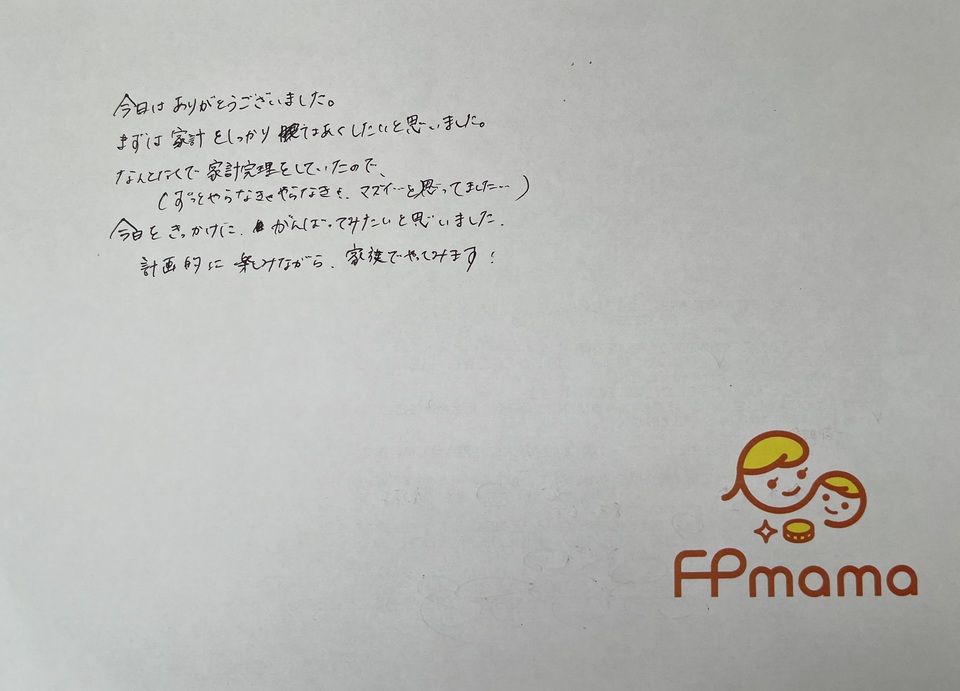 今日は ありがとうございました。
まずは 家計 をしっかり はあくしたいと思いました。
なんとなくで 家計管理をしていたので、
(ずっとやらなきゃやらなきゃ、マズイ…と思ってました…)
今日を きっかけに、がんばってみたいと思いました.
計画的に 楽しみながら、家族でやってみます!
FPmama